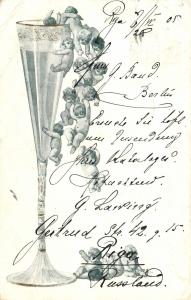 Riga 8/IV 05
28
Herrn
J. Band.
Berlin
Ersuche Sie höfl.
um Zusendung
Ihres Kataloges.
G.
Gertrud Str. 42. q. 15.
Riga
Russland.